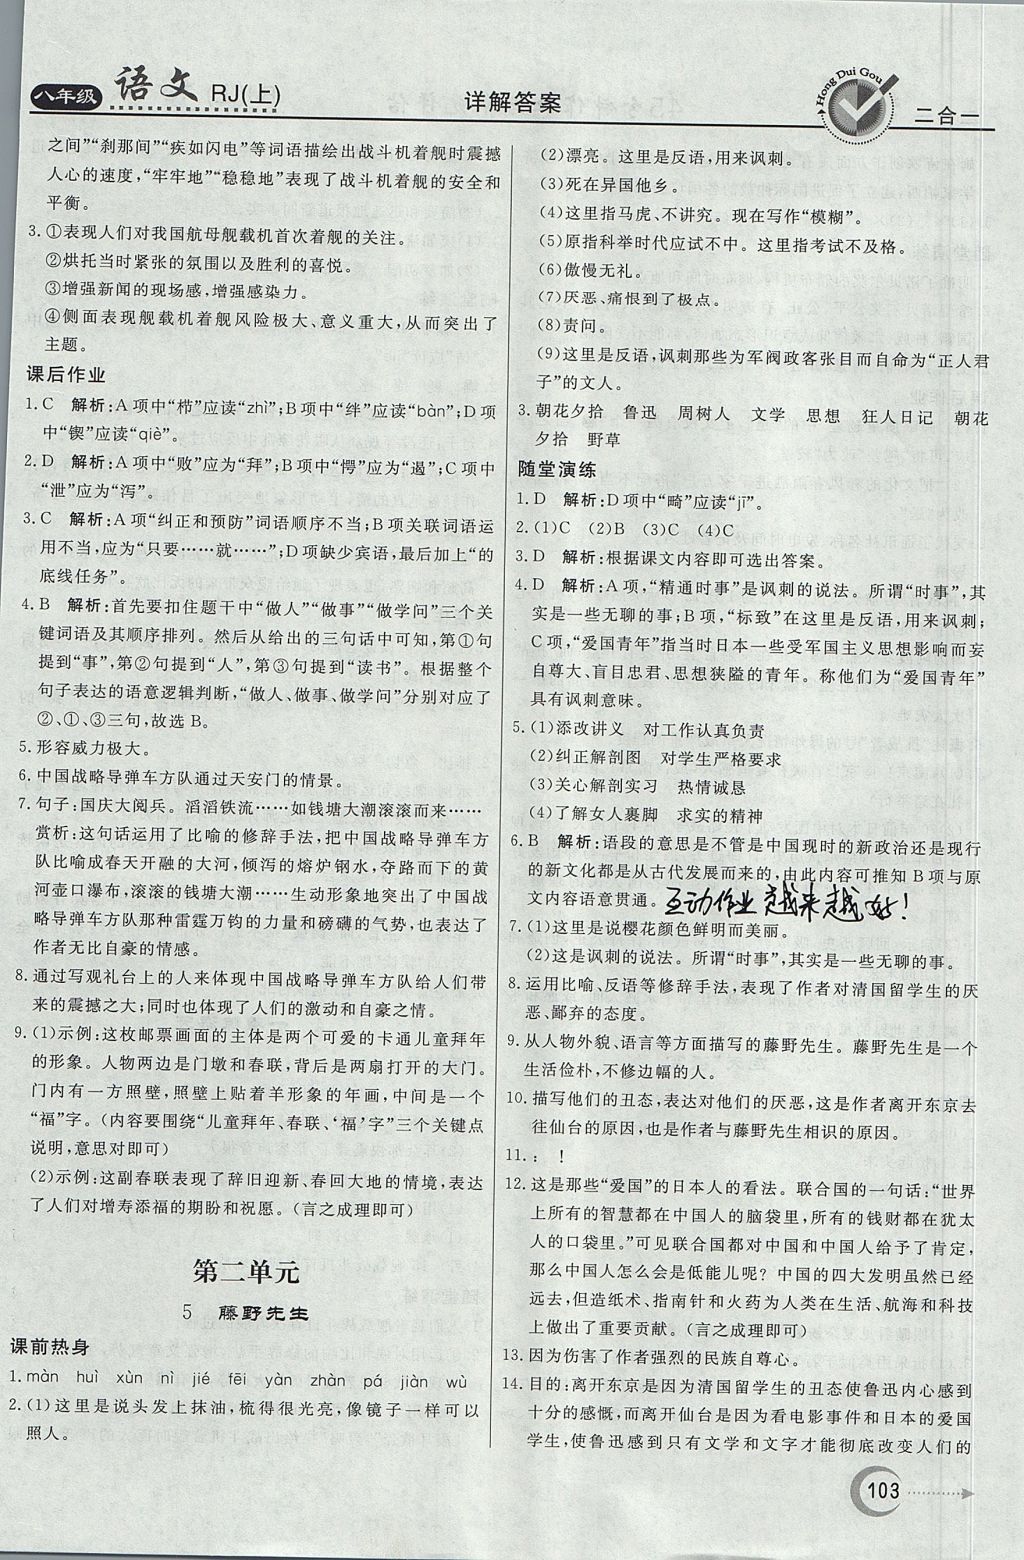 八年级 语文 RJ(上)
详解答案
Hong Dui Gou
二合一
之间”“刹那间”“疾如闪电”等词语描绘出战斗机着舰时震撼
人心的速度,“牢牢地”“稳稳地”表现了战斗机着舰的安全和
平衡。
3.①表现人们对我国航母舰载机首次着舰的关注。
②烘托当时紧张的氛围以及胜利的喜悦。
③增强新闻的现场感,增强感染力。
④侧面表现舰载机着舰风险极大、意义重大,从而突出了
主题。
课后作业
1.C 解析:A项中“栉”应读“zhì”;B项中“绊”应读“bàn”;D项
中“锲”应读“qiè”。
2.D 解析:A项中“败”应为“拜”;B项中“愕”应为“遏”;C项中
“泄”应为“泻”。
3.C 解析:A项“纠正和预防”词语顺序不当;B项关联词语运
用不当,应为“只要……就……”;D项缺少宾语,最后加上“的
底线任务”。
4.B 解析:首先要扣住题干中“做人”“做事”“做学问”三个关
键词语及其顺序排列。然后从给出的三句话中可知,第①句
提到“事”,第②句提到“人”,第③句提到“读书”。根据整个
句子表达的语意逻辑判断,“做人、做事、做学问”分别对应了
②、①、③三句,故选B。
5.形容威力极大。
6.中国战略导弹车方队通过天安门的情景。
7.句子:国庆大阅兵。滔滔铁流……如钱塘大潮滚滚而来……
赏析:这句话运用了比喻的修辞手法,把中国战略导弹车方
队比喻成春天开融的大河,倾泻的熔炉钢水,夺路而下的黄
河壶口瀑布,滚滚的钱塘大潮……生动形象地突出了中国战
略导弹车方队那种雷霆万钧的力量和磅礴的气势,也表达了
作者无比自豪的情感。
8.通过写观礼台上的人来体现中国战略导弹车方队给人们带
来的震撼之大;同时也体现了人们的激动和自豪之情。
9.(1)示例:这枚邮票画面的主体是两个可爱的卡通儿童拜年
的形象。人物两边是门墩和春联,背后是两扇打开的大门。
门内有一方照壁,照壁上贴着羊形象的年画,画中间是一个
“福”字。(内容要围绕“儿童拜年、春联、‘福’字”三个关键点
说明,意思对即可)
(2)示例:这副春联表现了辞旧迎新、春回大地的情境,表达
了人们对增寿添福的期盼和祝愿。(言之成理即可)
第二单元
5 藤野先生
课前热身
1.màn huì xùn nì jié fēi yàn zhàn pá jiàn wù
2.(1)这里是说头发上抹油,梳得很光亮,像镜子一样可以
照人。
(2)漂亮。这里是反语,用来讽刺。
(3)死在异国他乡。
(4)这里指马虎、不讲究。现在写作“模糊”。
(5)原指科举时代应试不中。这里指考试不及格。
(6)傲慢无礼。
(7)厌恶、痛恨到了极点。
(8)责问。
(9)这里是反语,讽刺那些为军阀政客张目而自命为“正人君
子”的文人。
3.朝花夕拾 鲁迅 周树人 文学 思想 狂人日记 朝花
夕拾 野草
随堂演练
1.D 解析:D项中“畸”应读“jī”。
2.(1)C (2)B (3)C (4)C
3.D 解析:根据课文内容即可选出答案。
4.D 解析:A项,“精通时事”是讽刺的说法。所谓“时事”,其
实是一些无聊的事;B项,“标致”在这里是反语,用来讽刺;
C项,“爱国青年”指当时日本一些受军国主义思想影响而妄
自尊大、盲目忠君、思想狭隘的青年。称他们为“爱国青年”
具有讽刺意味。
5.(1)添改讲义 对工作认真负责
(2)纠正解剖图 对学生严格要求
(3)关心解剖实习 热情诚恳
(4)了解女人裹脚 求实的精神
6.B 解析:语段的意思是不管是中国现时的新政治还是现行
的新文化都是从古代发展而来的,由此内容可推知B项与原
文内容语意贯通。 互动作业 越来越好!
7.(1)这里是说樱花颜色鲜明而美丽。
(2)这是讽刺的说法。所谓“时事”,其实是一些无聊的事。
8.运用比喻、反语等修辞手法,表现了作者对清国留学生的厌
恶、鄙弃的态度。
9.从人物外貌、语言等方面描写的藤野先生。藤野先生是一个
生活俭朴、不修边幅的人。
10.描写他们的丑态,表达对他们的厌恶,这是作者离开东京去
往仙台的原因,也是作者与藤野先生相识的原因。
11.: !
12.这是那些“爱国”的日本人的看法。联合国的一句话:“世界
上所有的智慧都在中国人的脑袋里,所有的钱财都在犹太
人的口袋里。”可见联合国都对中国和中国人给予了肯定,
那么中国人怎么会是低能儿呢?中国的四大发明虽然已经
远去,但造纸术、指南针和火药为人类在生活、航海和科技
上做出了重要贡献。(言之成理即可)
13.因为伤害了作者强烈的民族自尊心。
14.目的:离开东京是因为清国留学生的丑态使鲁迅内心感到
十分的感慨,而离开仙台是因为看电影事件和日本的爱国
学生,使鲁迅感到只有文学和文字才能彻底改变人们的
103